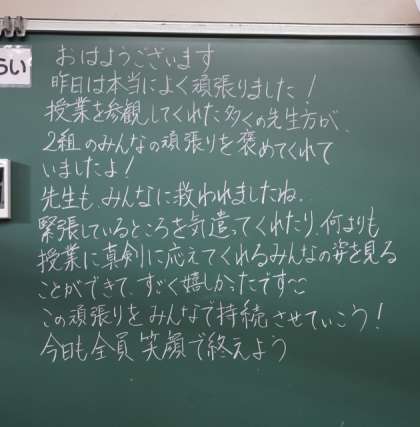 らい
おはようございます
昨日は本当によく頑張りました！
授業を参観してくれた多くの先生方が、
2組のみんなの頑張りを褒めてくれて
いましたよ！
先生も、みんなに救われましたね。
緊張しているところを気遣ってくれたり、何よりも
授業に真剣に応えてくれるみんなの姿を見る
ことができて、すごく嬉しかったです〜
この頑張りをみんなで持続させていこう！
今日も全員笑顔で終えよう